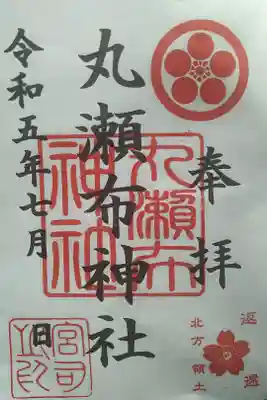 奉拝
丸瀬布神社
丸瀬布
神社
令和五年七月 日
宮司
之印
返還
北方領土